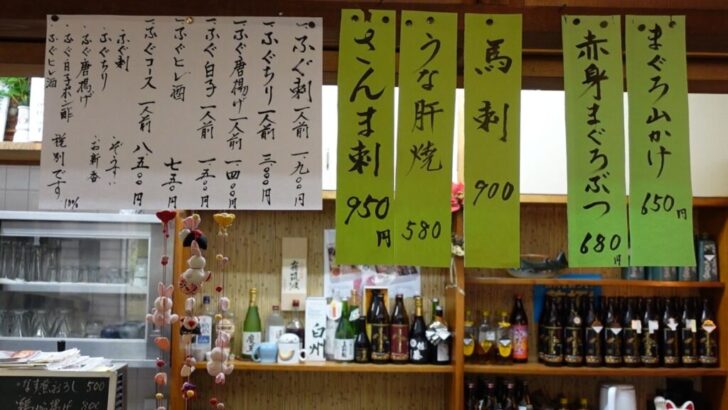 まぐろ山かけ 650円
赤身まぐろぶつ 680円
馬刺 900
うな肝焼 580
さんま刺 950円
一、ふぐ刺 一人前 一、九〇〇円
一、ふぐちり 一人前 三、〇〇〇円
一、ふぐ唐揚げ 一人前 一、四〇〇円
一、ふぐ白子 一人前 一、五〇〇円
一、ふぐヒレ酒 七五〇円
一、ふぐコース 一人前 八、五〇〇円
・ふぐ刺
・ふぐちり
・ふぐ唐揚げ
・ふぐ白子ポン酢
・ふぐヒレ酒
・ぞうすい
・お新香
税別です
10%
白州
500
800